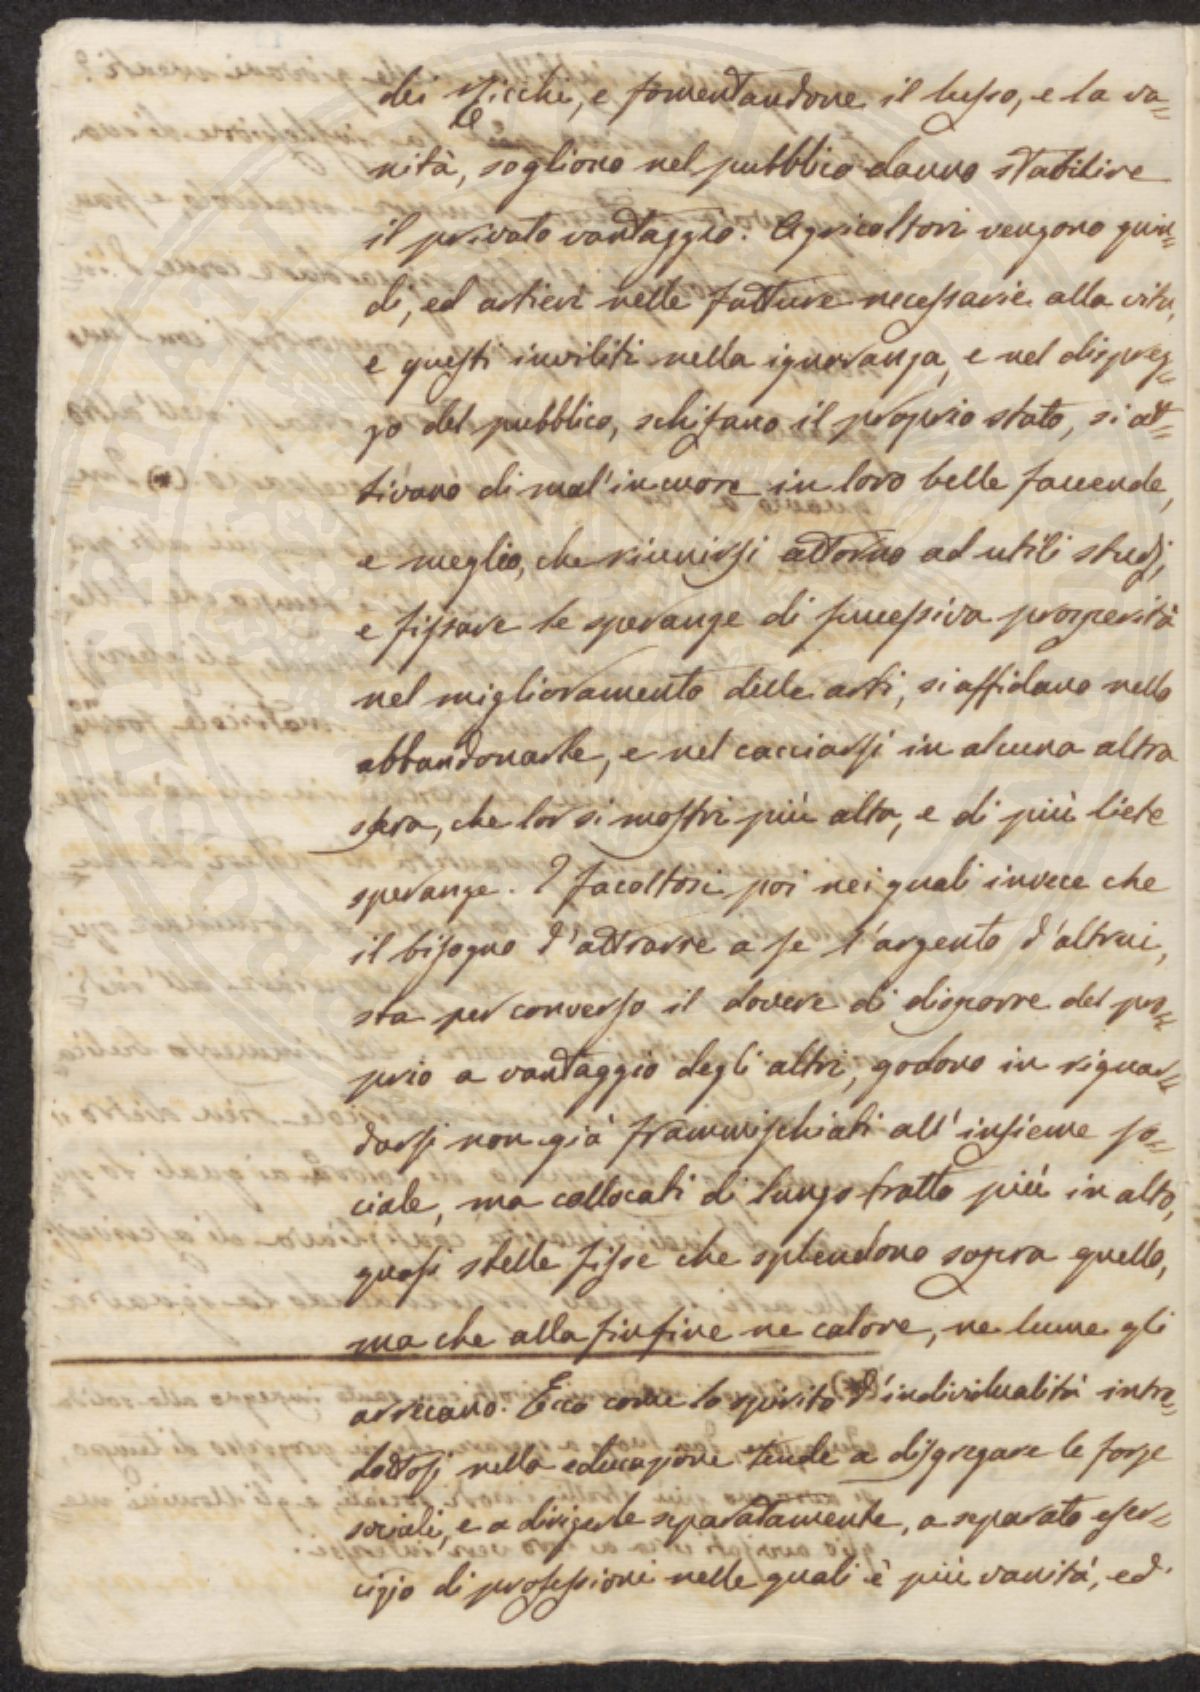 dei ricchi, e fomentandone il lusso, e la va=
le
nità, sogliono nel pubblico danno stabilire
il privato vantaggio. Agricoltori vengono quin=
di, ed artieri nelle fatture necessarie alla vita,
e questi inviliti nella ignoranza, e nel disprez=
zo del pubblico, schifano il proprio stato, si at=
tivano di mal'in cuore in loro belle faccende,
e meglio, che riunirsi attorno ad utili studj,
e fissare le speranze di successiva prosperità
nel miglioramento delle arti, si affidano nello
abbandonarle, e nel cacciarsi in alcuna altra
sfera, che lor si mostri più alta, e di più liete
speranze. I facoltosi poi nei quali invece che
il bisogno d'attrarre a se l'argento d'altrui,
sta per converso il dovere di disporre del pro=
prio a vantaggio degli altri, godono in riguar=
darsi non già frammischiati all'insieme so=
ciale, ma collocati di lungo tratto più in alto,
quasi stelle fisse che splendono sopra quello,
ma che alla finfine ne calore, ne lume gli
arrecano. Ecco come lo spirito d'individualità intro=
dottosi nella educazione tende a disgregare le forze
sociali, e a dirigerle separatamente, a separato eser=
cizio di professioni nelle quali è più vanità, ed